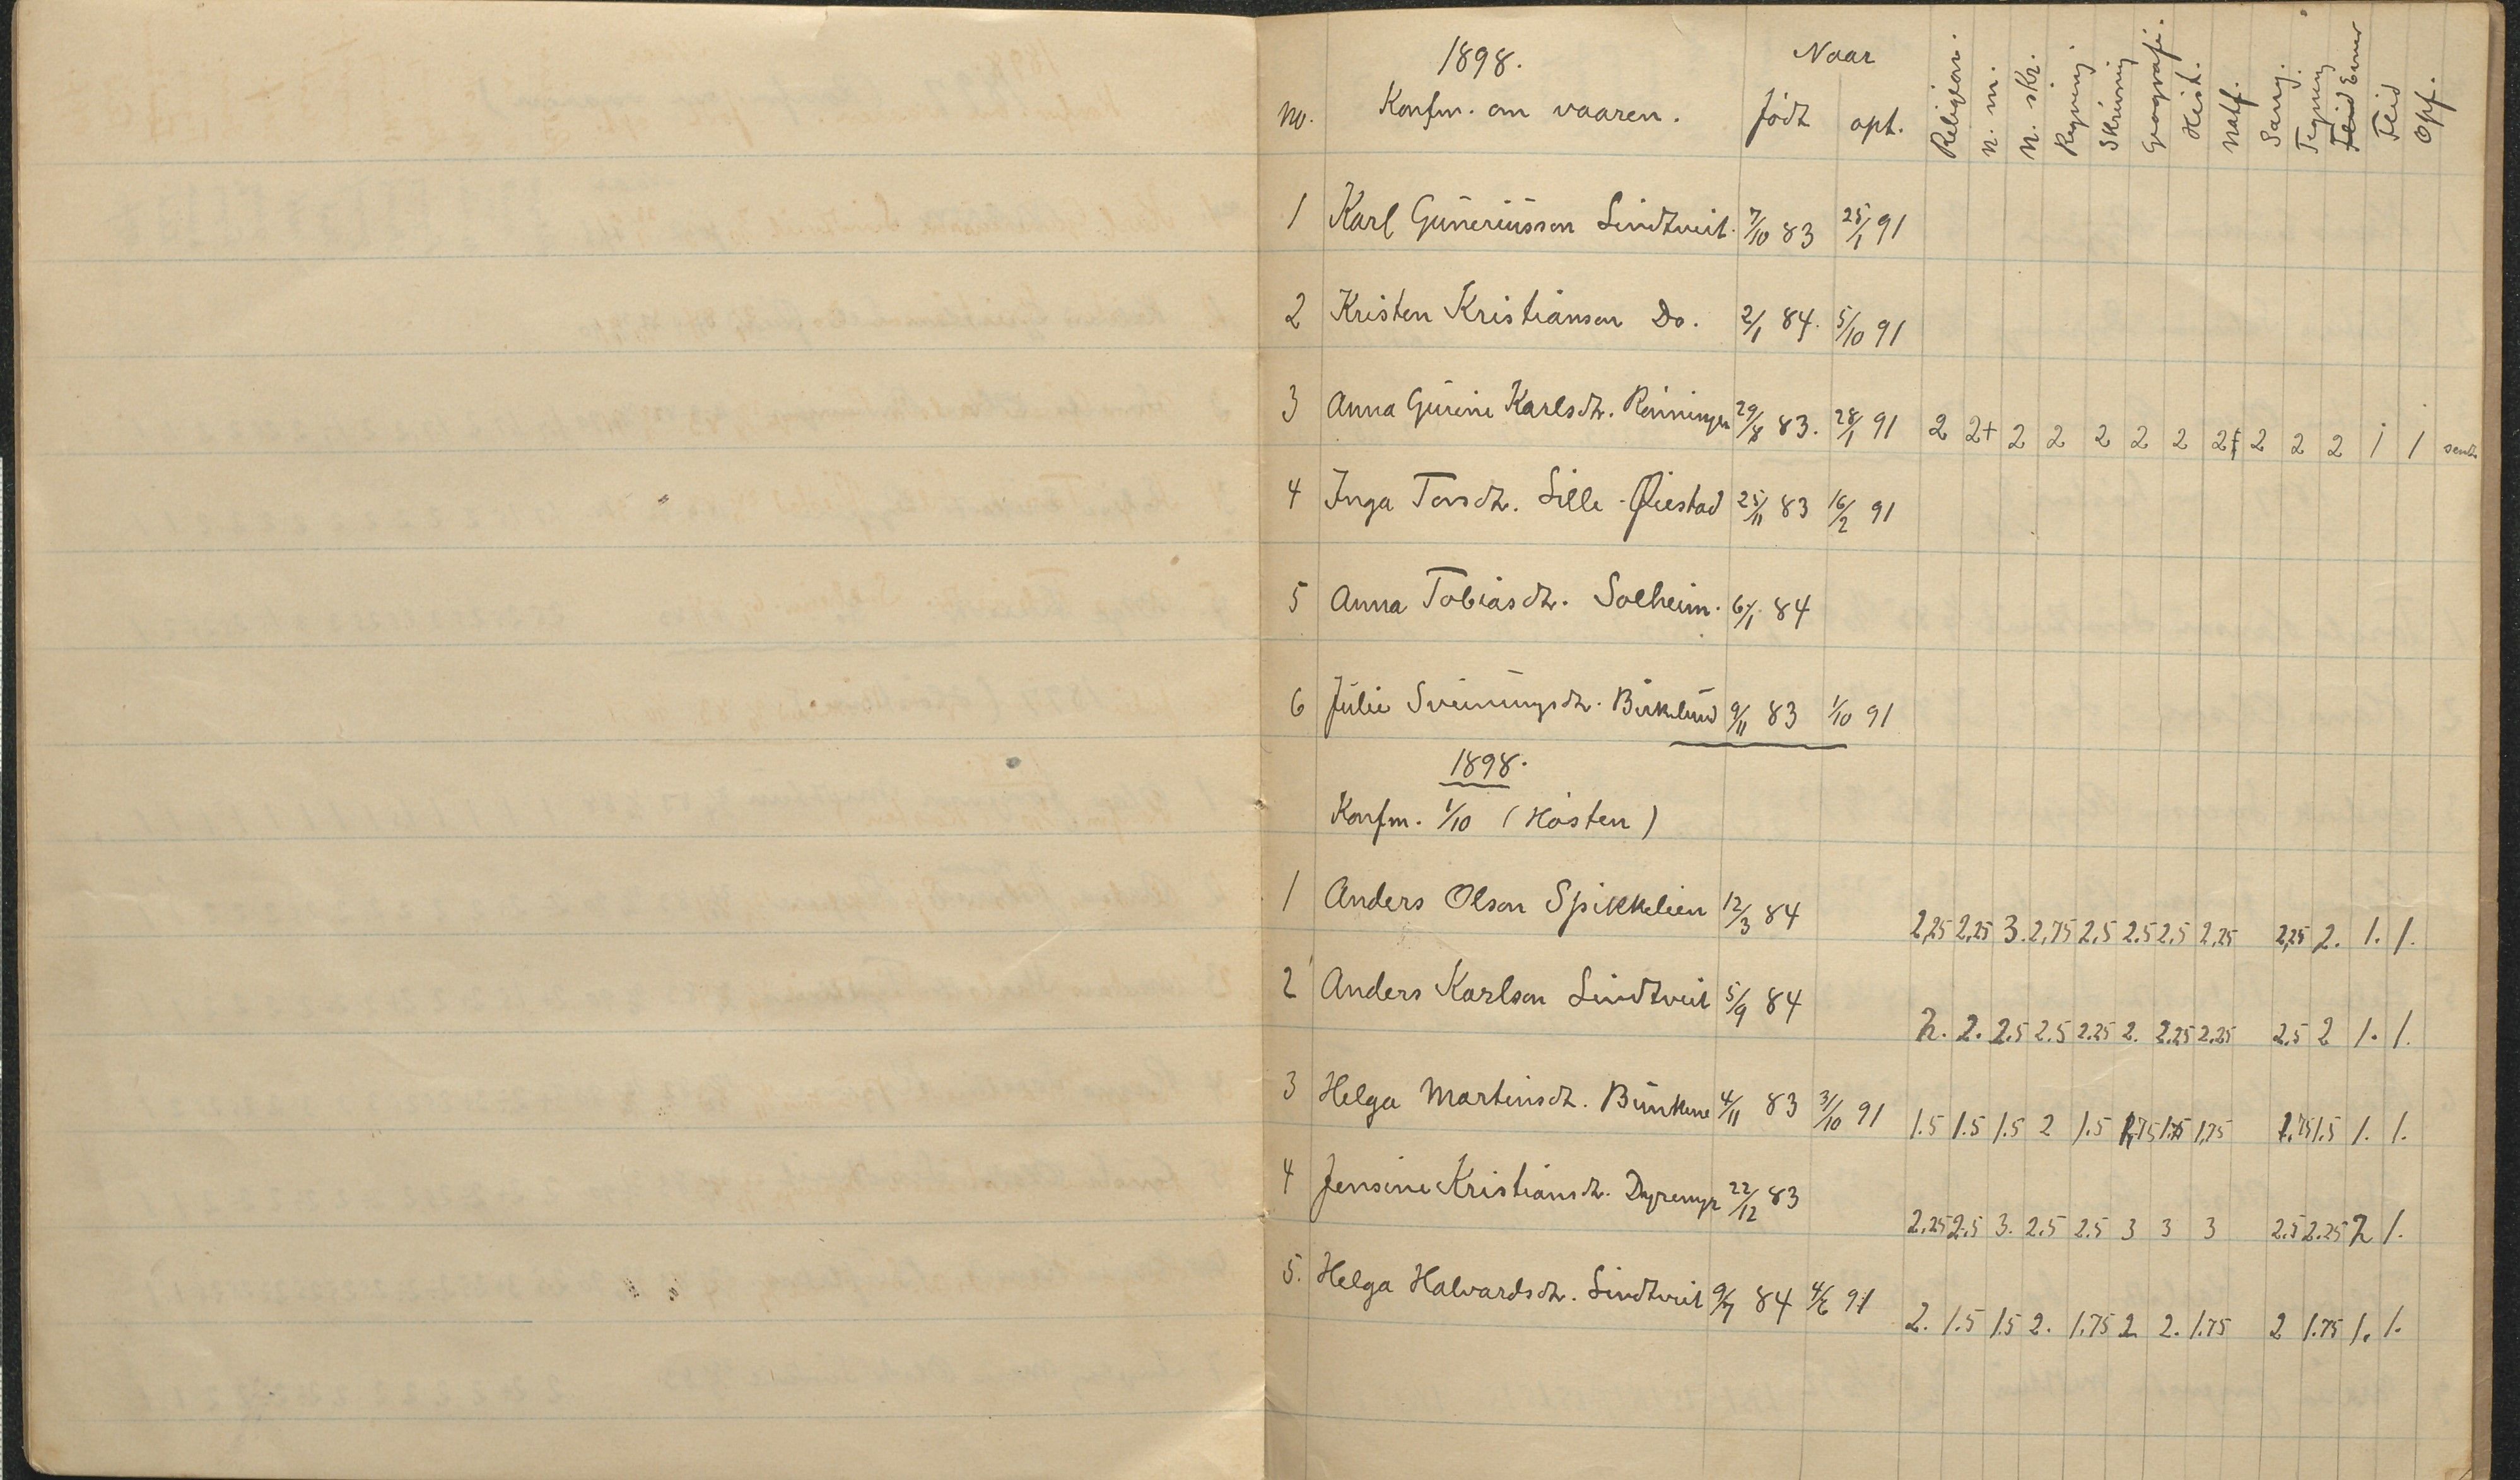 1898. Naar
No. Konfm. om vaaren. født opt. Religion. N. m. N. skr. Regning Skrivning Geografi. Hist. Natf. Sang. Tegning Flid Evner Flid Opf.
1 Karl Guneriusson Lindtveit. 7/10 83 25/1 91
2 Kristen Kristianson Do. 2/1 84. 5/10 91
3 Anna Gurine Karlsdtr. Rønningen 29/8 83. 28/1 91 2 2+ 2 2 2 2 2 2+ 2 2 2 1 1 sendt
4 Inga Torsdtr. Lille-Øiestad 25/11 83 16/2 91
5 Anna Tobiasdtr. Solheim. 6/1 84
6 Julie Sveinungsdtr. Birkelund 9/11 83 1/10 91
1898.
Konfm. 1/10 (Høsten)
1 Anders Olson Spikkelien 12/3 84 2,25 2,25 3. 2,75 2,5 2.5 2,5 2,25 2,25 2. 1. 1.
2 Anders Karlson Lindtveit 5/9 84 2. 2. 2.5 2.5 2.25 2. 2.25 2.25 2.5 2 1. 1.
3 Helga Martinsdtr. 4/11 83 31/10 91 1.5 1.5 1.5 2 1.5 1,75 1.75 1,75 1.75 1.5 1. 1.
4 Jensine Kristiansdtr. Dyremyr 22/12 83 2.25 2.5 3. 2.5 2.5 3 3 3 2.5 2.25 2 1.
5. Helga Halvardsdtr. Lindtveit 9/7 84 4/6 91 2. 1.5 1.5 2. 1.75 2 2. 1.75 2 1.75 1. 1.